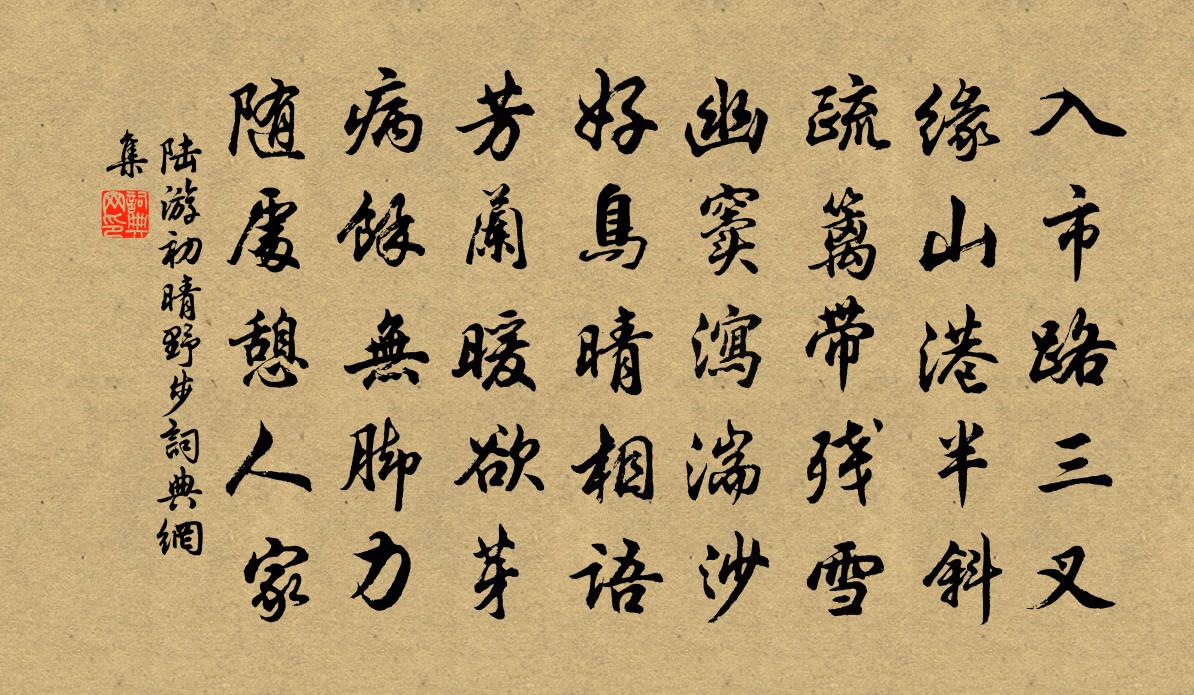 入市路三叉
緣山港半斜
疏篱带残雪
幽窦瀉湍沙
好鳥晴相語
芳蘭暖欲芽
病餘無脚力
随處憩人家
陆游初晴野步詞典網
集
詞典
网印